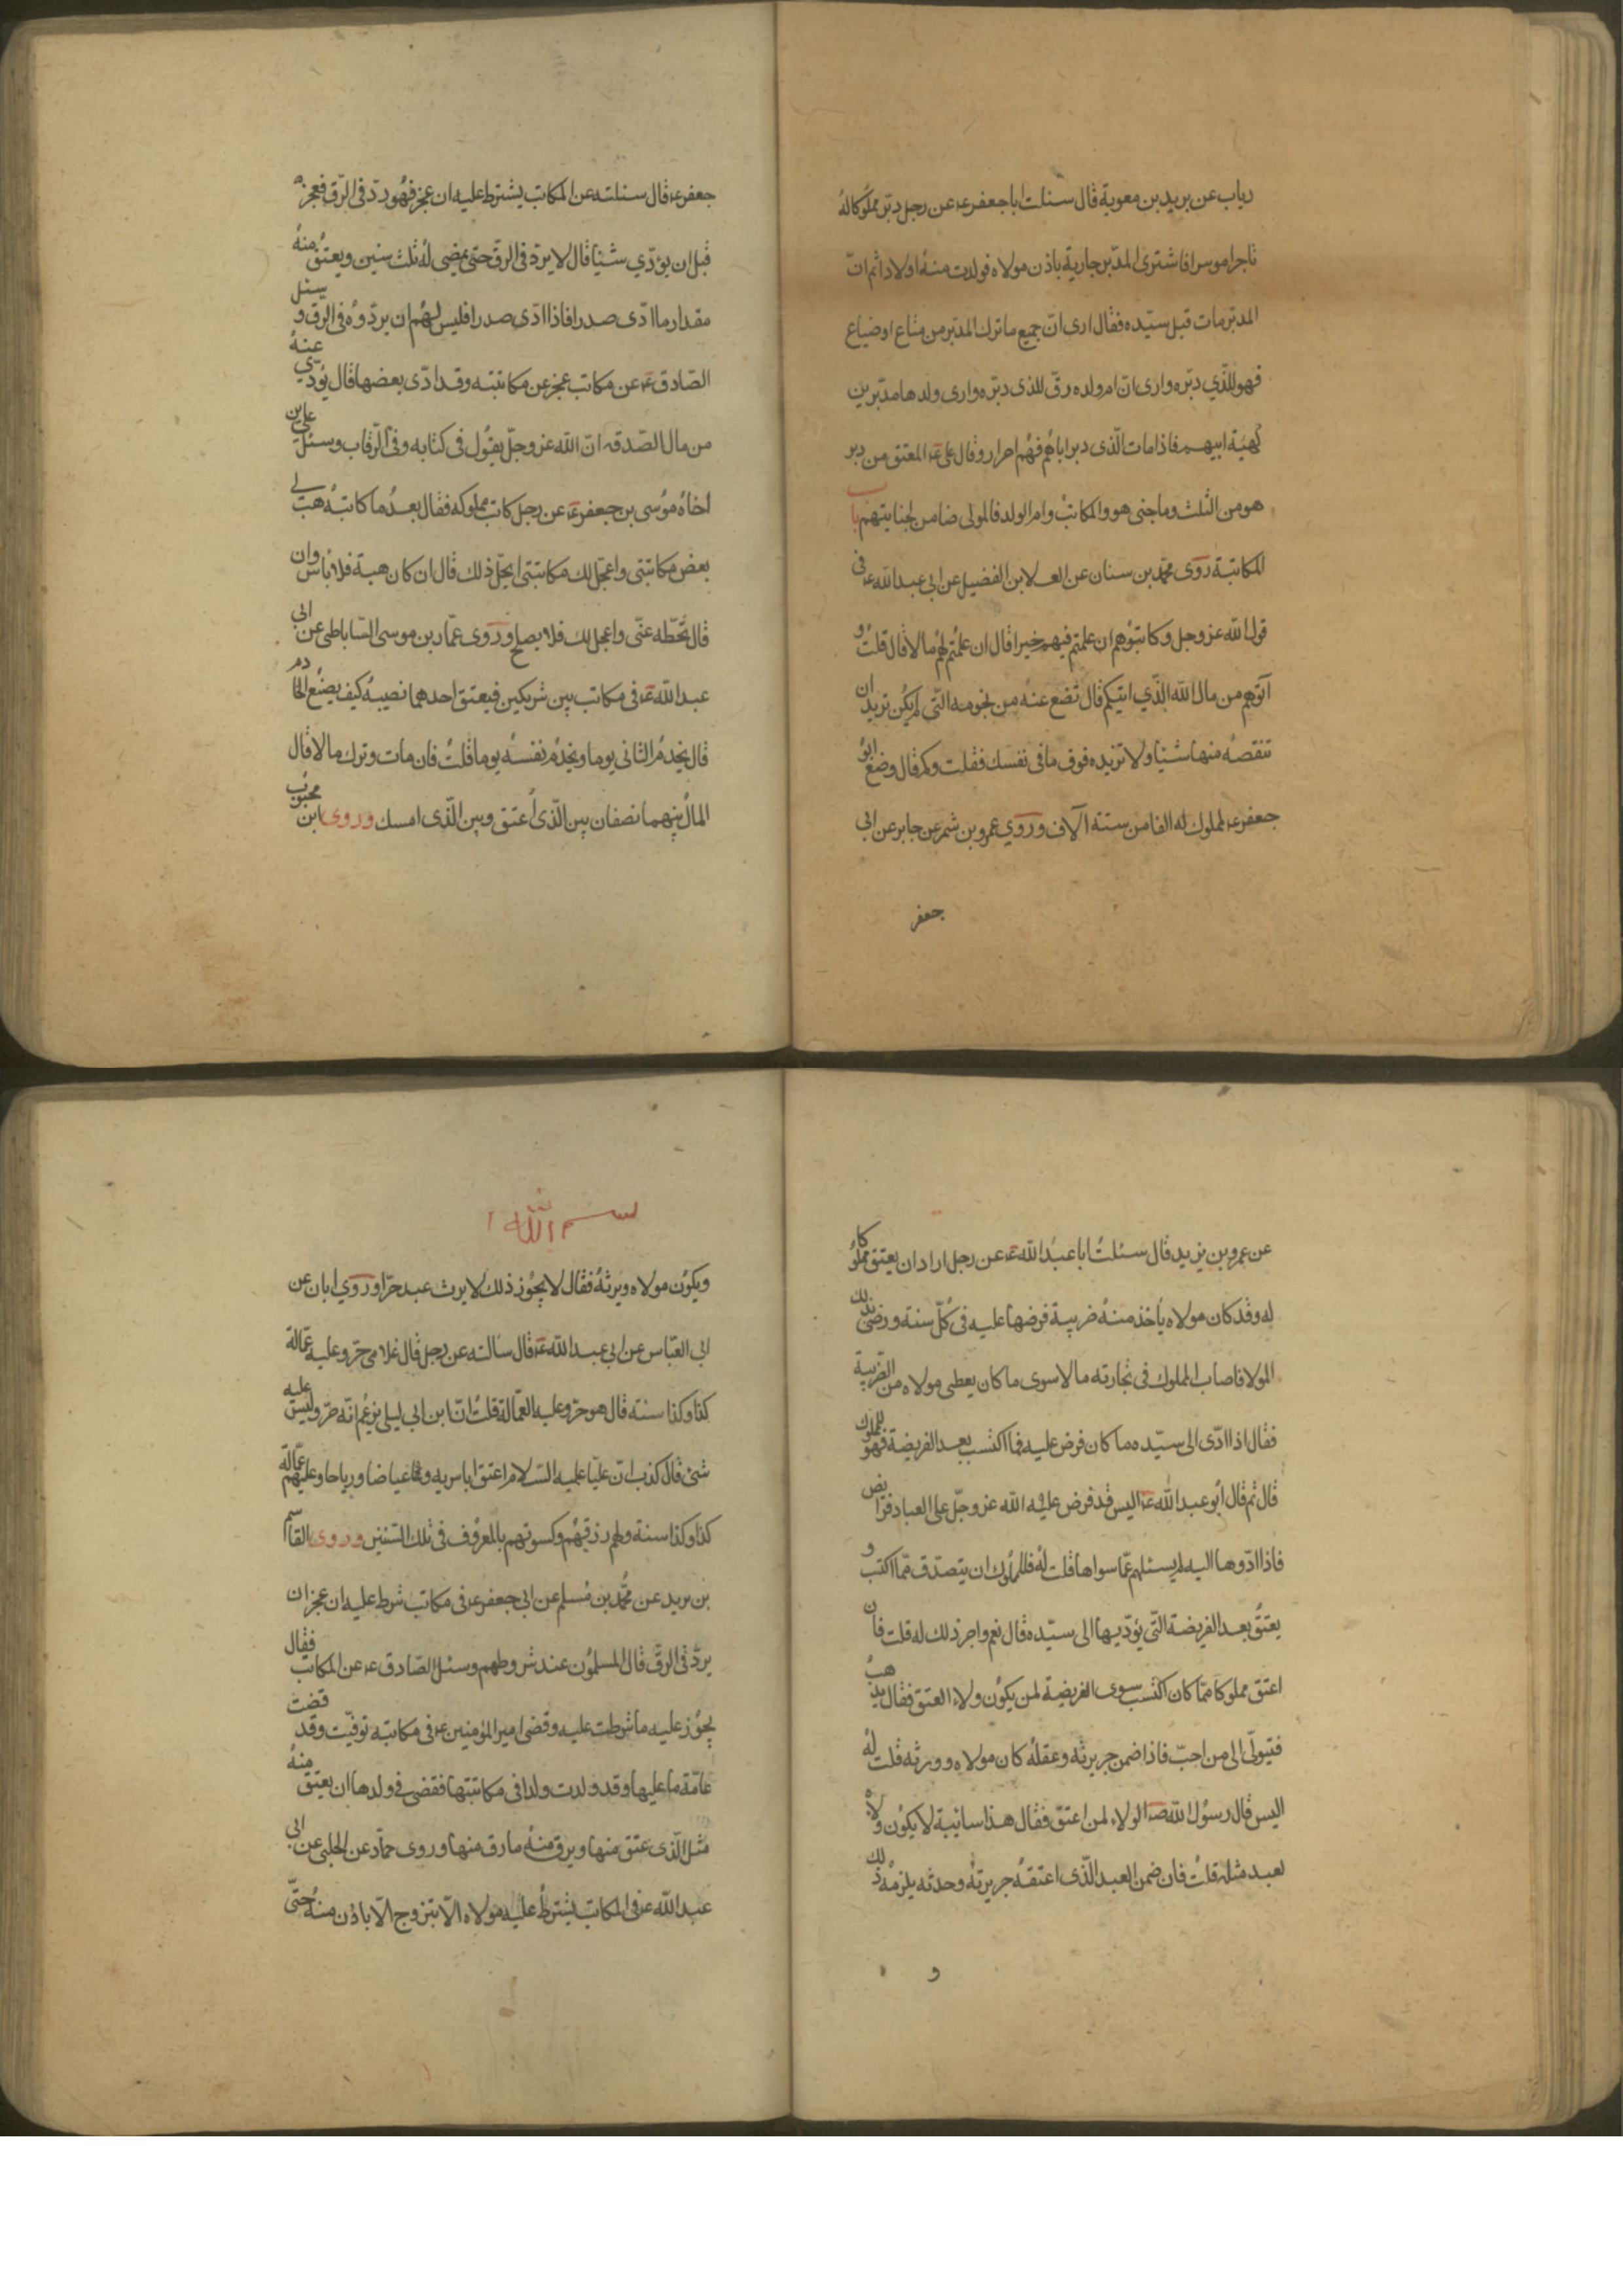 رياب عن بريد بن معوية قال سئلت ابا جعفر ع عن رجل دبّر مملوكا لهُ
تاجرا موسرا فاشترى المدبّر جارية باذن مولاه فولدت منهُ اولادا ثم انّ
المدبّر مات قبل سيّده فقال ارى انّ جميع ما ترك المدبّر من متاع او ضياع
فهو للّذي دبّره وارى انّ ام ولده رقّ للذى دبّره وارى ولدها مدبّرين
كهيئة ابيهم فاذا مات الّذى دبر اباهُم فهُم احرار وقال على ع المعتق من دبر
هو من الثلث وما جنى هو والمكاتبُ وام الولد فالمولى ضامن لجنايتهم باب
المكاتبة روى محمّد بن سنان عن العلا بن الفضيل عن ابي عبد الله ع فى
قول الله عز وجل وكاتبُوهم ان علمتم فيهم خيرا قال ان علمتُم لهُم مالا قال قلتُ و
آتوهم من مال الله الّذي اتيكم قال تضع عنهُ من نجومه الّتى لم يكُن تريد ان
تنقصهُ منها شيئا ولا تزيده فوق ما فى نفسك فقلت وكم قال وضع ابوُ
جعفر ع لمملوك له الفا من ستة آلاف وروي عمرو بن شمر عن جابر عن ابى
جعفر
جعفر ع قال سئلته عن المكاتب يشترط عليه ان عجز فهُو ردّ فى الرّق فعجز
قبل ان يؤدّي شيئا قال لا يردّ فى الرقّ حتى يمضى لهُ ثلث سنين ويعتقُ منهُ
مقدار ما ادّى صدرا فاذا ادّى صدرا فليس لهُم ان يردّوهُ فى الرق و سئل
الصّادق ع عن مكاتب عجز عن مكاتبته وقد ادّى بعضها قال يُؤدّي عنهُ
من مال الصّدقه انّ الله عز وجلّ يقوُل فى كتابه وفى الرّقاب وسئل على بن
اخاهُ مُوسى بن جعفر ع عن رجل كاتب مملوكه فقال بعدُ ما كاتبهُ هب لى
بعض مكاتبتى واعجّل لك مكاتبتى ايحلّ ذلك قال ان كان هبة فلا بأس وان
قال تُحّطه عنّى واعجل لك فلا يصلح وروى عمّار بن موسى السّاباطى عن ابى
عبد الله ع فى مكاتب بين شريكين فيعتق احدهما نصيبهُ كيف يصنُع الخادم
قال يخدمُ الثانى يوما ويخدُم نفسهُ يوما قلتُ فان مات وترك مالا قال
المالُ بينهما نصفان بين الّذى اُعتق وبين الّذى امسك وروى ابن محبوُب
عن عمرو بن يزيد قال سئلتُ ابا عبد الله ع عن رجل اراد ان يعتق مملوُكا
له وقد كان مولاه يأخذ منهُ ضريبة فرضها عليه فى كُلّ سنة ورضى بذلك
المولا فاصاب المملوك فى تجارته مالا سوى ما كان يعطى مولاه من الضّريبة
فقال اذا ادّى الى سيّده ما كان فرض عليه فما اكتسب بعد الفريضة فهو للملوك
قال ثم قال ابُو عبد الله ع اليس قد فرض عليه الله عز وجلّ على العباد فرايض
فاذا ادّوها اليه لم يسئلهم عمّا سواها قلت لهُ فللملُوك ان يتصدّق ممّا اكتسب و
يعتقُ بعد الفريضة الّتى يؤدّيها الى سيّده قال نعم واجر ذلك له قلت فان
اعتق مملوكا ممّا كان اكتسب سوى الفريضة لمن يكوُن ولاء العتق فقال يذهبُ
فيتولّى الى من احبّ فاذا ضمن جريرته وعقلهُ كان مولاه وورثه قلت لهُ
اليس قال رسوُل الله ص الولاء لمن اعتق فقال هذا سائبة لا يكوُن ولاه
لعبد مثله قلتُ فان ضمن العبد الّذى اعتقهُ جريرتهُ وحدثه يلزمهُ ذلك
و
بسم الله
ويكوُن مولاه ويرثهُ فقال لا يجُوز ذلك لا يرث عبد حرّا وروي ابان عن
ابى العبّاس عن ابي عبد الله ع قال سألته عن رجل قال غلامى حرّ وعليه عمّالة
كذا وكذا سنة قال هو حرّ وعليه العمّالة قلتُ انّ ابن ابى ليلى يزعُم انّه حرّ وليس عليه
شئ قال كذب انّ عليّا عليه السّلام اعتق ابا بيرز وعياضا ورياحا وعليهم عمّالة
كذا وكذا سنة ولهم رزقهُم وكسوتهم بالمعرُوف فى تلك السّنين وروى القاسم
بن بريد عن محُمّد بن مُسلم عن ابى جعفر ع فى مكاتب شرط عليه ان عجز ان
يردّ فى الرقّ قال المسلمُون عند شروطهم وسئل الصّادق ع عن المكاتب فقال
يجُوز عليه ما شرطت عليه وقضى امير المؤمنين ع فى مكاتبة توفّيت وقد قضت
عامّة ما عليها وقد ولدت ولدا فى مكاتبتها فقضى فى ولدها ان يعتق منهُ
مثل الّذى عتق منها ويرق منهُ ما رق منها وروى حمّاد عن الحلبى عن ابى
عبد الله ع فى المكاتب يشترطُ عليه مولاه الّا يتزوج الّا باذن منهُ حتّى